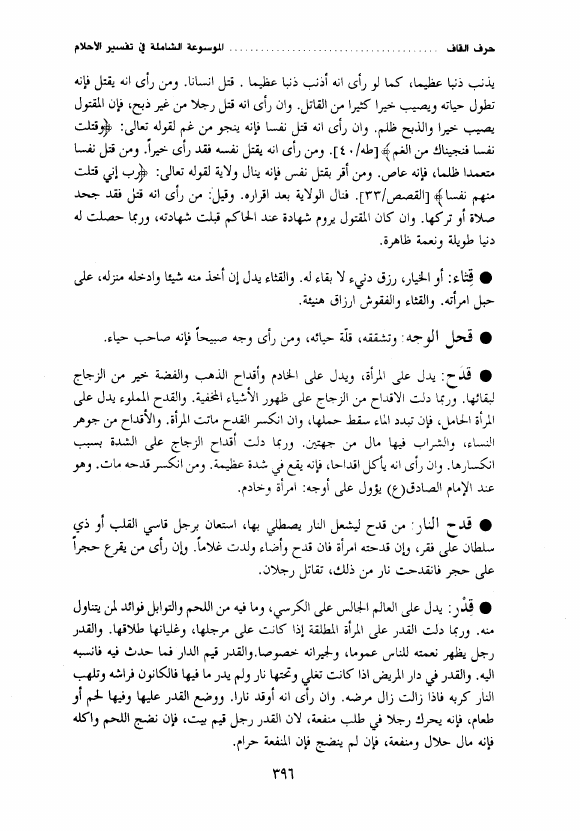 حرف القاف ........................................ الموسوعة الشاملة في تفسير الأحلام
يذنب ذنبا عظيما، كما لو رأى انه أذنب ذنبا عظيما . قتل انسانا. ومن رأى انه يقتل فإنه
تطول حياته ويصيب خيرا كثيرا من القاتل. وان رأى انه قتل رجلا من غير ذبح، فإن المقتول
يصيب خيرا والذبح ظلم. وان رأى انه قتل نفسا فإنه ينجو من غم لقوله تعالى: ﴿وقتلت
نفسا فنجيناك من الغم﴾ [طه/٤٠]. ومن رأى انه يقتل نفسه فقد رأى خيراً. ومن قتل نفسا
متعمدا ظلما، فإنه عاص. ومن أقر بقتل نفس فإنه ينال ولاية لقوله تعالى: ﴿رب إني قتلت
منهم نفسا﴾ [القصص/٣٣]. فنال الولاية بعد اقراره. وقيل: من رأى انه قتل فقد جحد
صلاة أو تركها. وان كان المقتول يروم شهادة عند الحاكم قبلت شهادته، وربما حصلت له
دنيا طويلة ونعمة ظاهرة.
● قِثّاء: أو الخيار، رزق دنيء لا بقاء له. والقثاء يدل إن أخذ منه شيئا وادخله منزله، على
حبل امرأته. والقثاء والفقوش ارزاق هنيئة.
● قحل الوجه: وتشققه، قلّة حيائه، ومن رأى وجه صبيحاً فإنه صاحب حياء.
● قَدَح: يدل على المرأة، ويدل على الخادم وأقداح الذهب والفضة خير من الزجاج
لبقائها. وربما دلت الاقداح من الزجاج على ظهور الأشياء المخفية. والقدح المملوء يدل على
المرأة الحامل، فإن تبدد الماء سقط حملها، وان انكسر القدح ماتت المرأة. والأقداح من جوهر
النساء، والشراب فيها مال من جهتين. وربما دلت أقداح الزجاج على الشدة بسبب
انكسارها. وان رأى انه يأكل اقداحا، فإنه يقع في شدة عظيمة. ومن انكسر قدحه مات. وهو
عند الإمام الصادق(ع) يؤول على أوجه: امرأة وخادم.
● قدح النار: من قدح ليشعل النار يصطلي بها، استعان برجل قاسي القلب أو ذي
سلطان على فقر، وإن قدحته امرأة فان قدح وأضاء ولدت غلاماً. وإن رأى من يقرع حجراً
على حجر فانقدحت نار من ذلك، تقاتل رجلان.
● قِدْر: يدل على العالم الجالس على الكرسي، وما فيه من اللحم والتوابل فوائد لمن يتناول
منه. وربما دلت القدر على المرأة المطلقة إذا كانت على مرجلها، وغليانها طلاقها. والقدر
رجل يظهر نعمته للناس عموما، ولجيرانه خصوصا.والقدر قيم الدار فما حدث فيه فانسبه
اليه. والقدر في دار المريض اذا كانت تغلي وتحتها نار ولم يدر ما فيها فالكانون فراشه وتلهب
النار كربه فاذا زالت زال مرضه. وان رأى انه أوقد نارا. ووضع القدر عليها وفيها لحم أو
طعام، فإنه يحرك رجلا في طلب منفعة، لان القدر رجل قيم بيت، فإن نضج اللحم واكله
فإنه مال حلال ومنفعة، فإن لم ينضج فإن المنفعة حرام.
٣٩٦